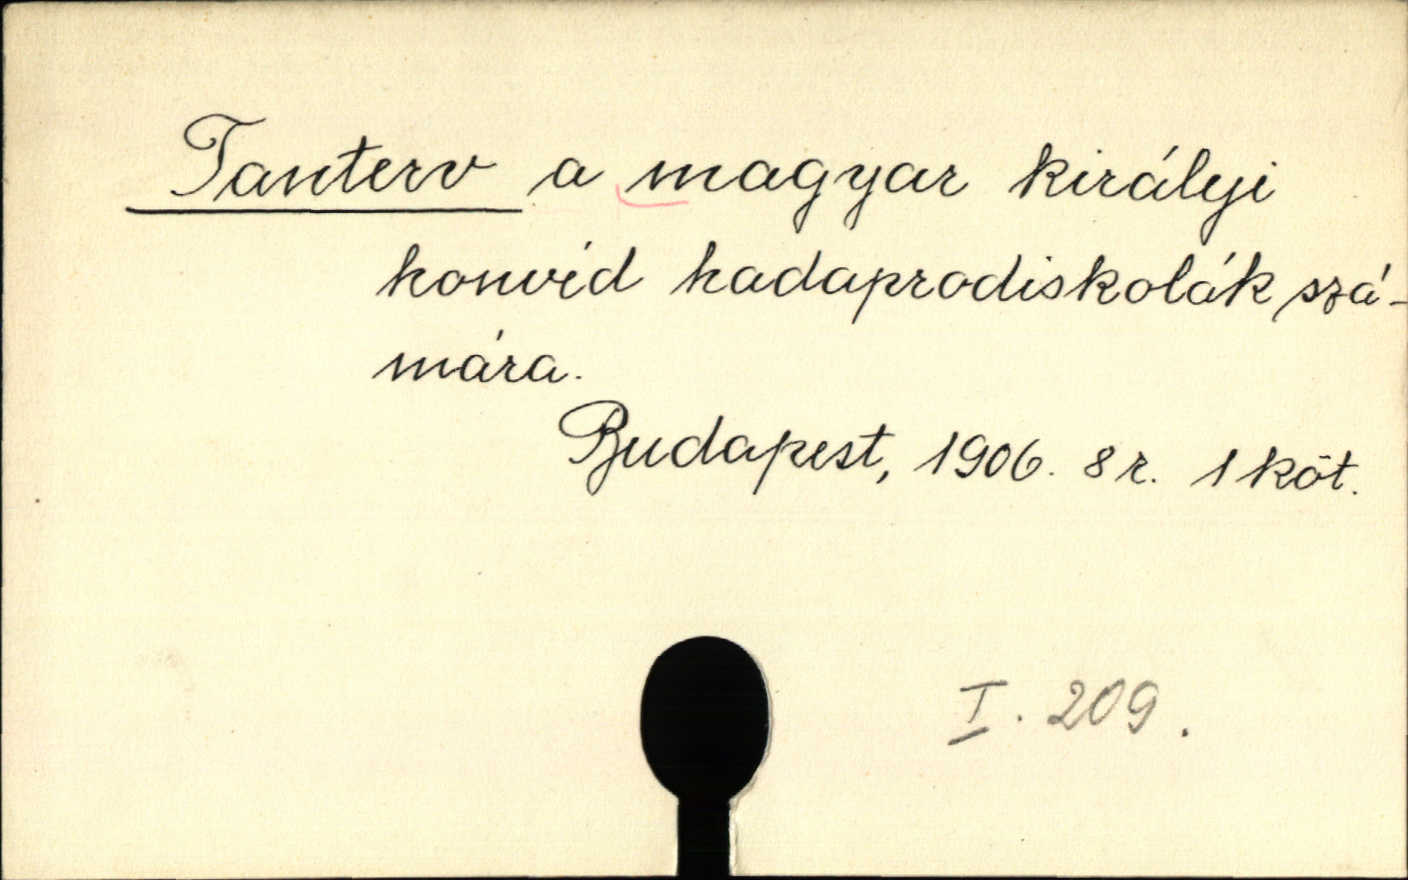 Tanterv a magyar királyi
honvéd hadaprodiskolák szá-
mára.
Budapest, 1906. 8 r. 1 köt.
I. 209.